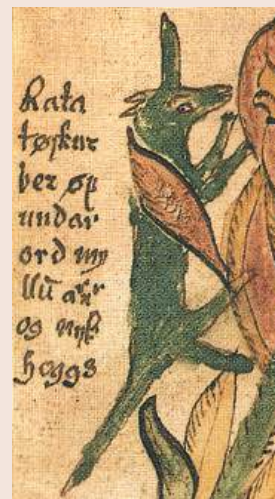 Rata
tøskur
ber øf
undar
ord my
llū arnr
og nyþ
hoggs